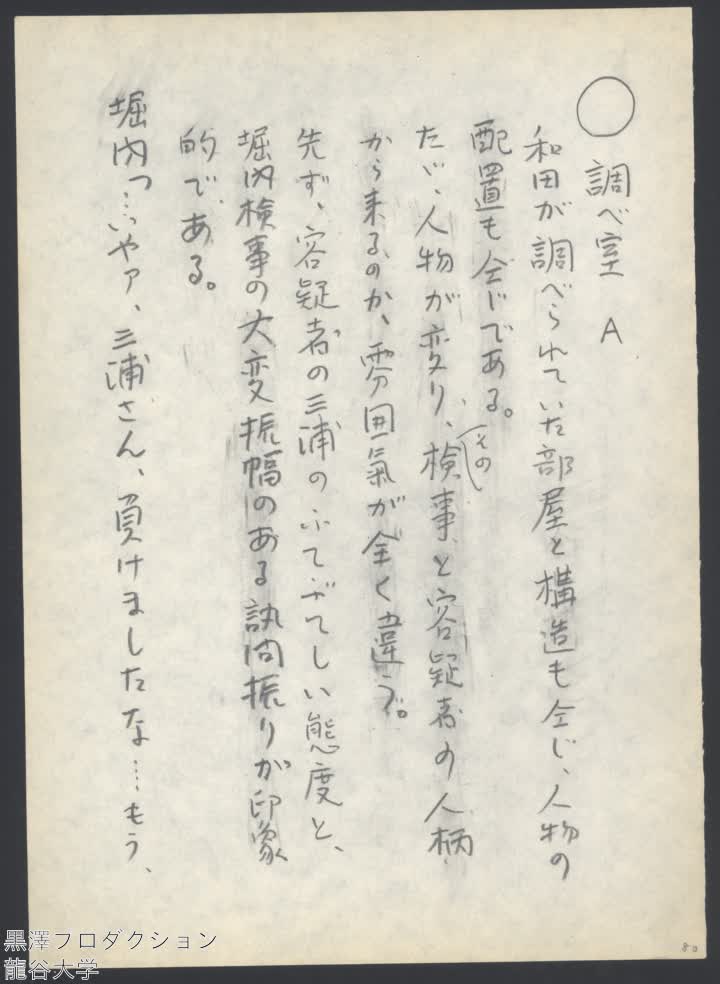 ○ 調べ室 A
和田が調べられていた部屋と構造も仝じ、人物の
配置も仝じである。
たゞ、人物が変り、その検事と容疑者の人柄
から来るのか、雰囲氣が全く違う。
先ず、容疑者の三浦のふてぶてしい態度と、
堀内検事の大変振幅のある訊問振りが印象
的である。
堀内「…いやァ、三浦さん、負けましたな…もう、
80
黒澤プロダクション
龍谷大学